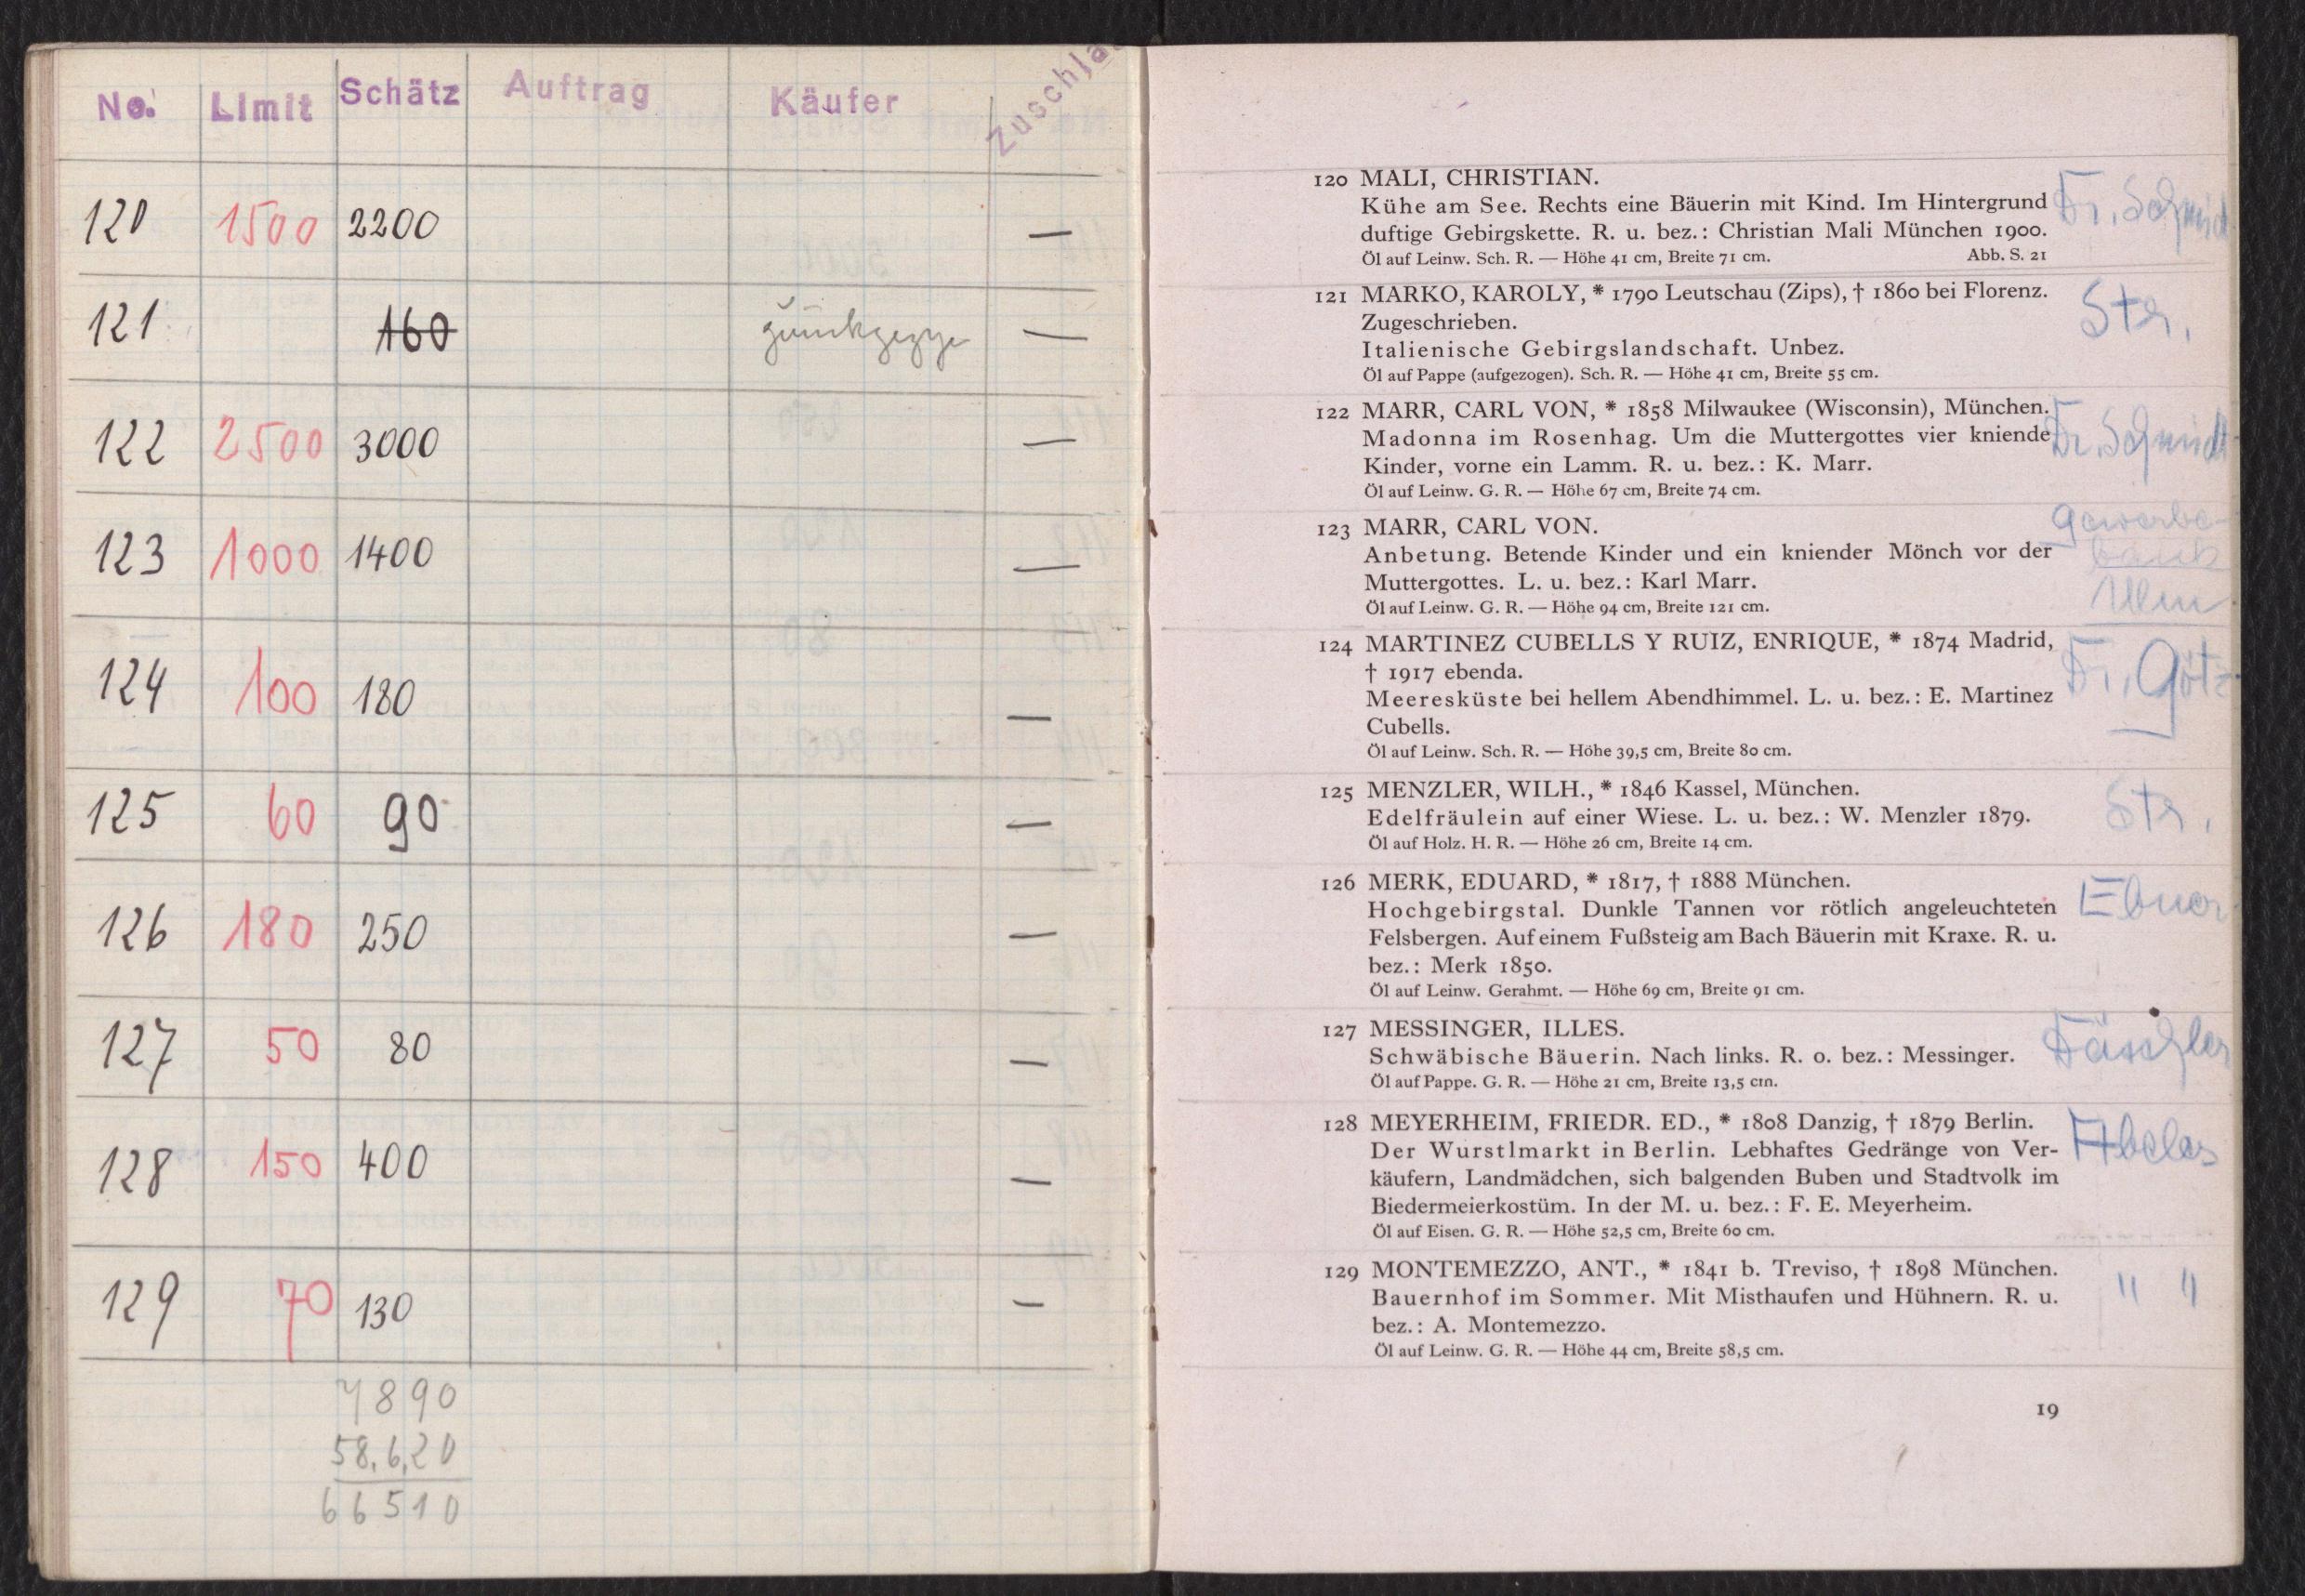 No. Limit Schätz Auftrag Käufer Zuschla
120 1500 2200 —
121 160 —
122 2500 3000 —
123 1000 1400 —
124 100 180 —
125 60 90 —
126 180 250 —
127 50 80 —
128 150 400 —
129 70 130 —
7890
58,620
66510
120 MALI, CHRISTIAN.
Kühe am See. Rechts eine Bäuerin mit Kind. Im Hintergrund Dr. Schmid
duftige Gebirgskette. R. u. bez.: Christian Mali München 1900.
Öl auf Leinw. Sch. R. — Höhe 41 cm, Breite 71 cm. Abb. S. 21
121 MARKO, KAROLY, * 1790 Leutschau (Zips), † 1860 bei Florenz. Str.
Zugeschrieben.
Italienische Gebirgslandschaft. Unbez.
Öl auf Pappe (aufgezogen). Sch. R. — Höhe 41 cm, Breite 55 cm.
122 MARR, CARL VON, * 1858 Milwaukee (Wisconsin), München.
Madonna im Rosenhag. Um die Muttergottes vier kniende Dr. Schmidt
Kinder, vorne ein Lamm. R. u. bez.: K. Marr.
Öl auf Leinw. G. R. — Höhe 67 cm, Breite 74 cm.
123 MARR, CARL VON. Gewerbe-
Anbetung. Betende Kinder und ein kniender Mönch vor der bank
Muttergottes. L. u. bez.: Karl Marr. Ulm
Öl auf Leinw. G. R. — Höhe 94 cm, Breite 121 cm.
124 MARTINEZ CUBELLS Y RUIZ, ENRIQUE, * 1874 Madrid,
† 1917 ebenda. Dr. Götz
Meeresküste bei hellem Abendhimmel. L. u. bez.: E. Martinez
Cubells.
Öl auf Leinw. Sch. R. — Höhe 39,5 cm, Breite 80 cm.
125 MENZLER, WILH., * 1846 Kassel, München.
Edelfräulein auf einer Wiese. L. u. bez.: W. Menzler 1879. Str.
Öl auf Holz. H. R. — Höhe 26 cm, Breite 14 cm.
126 MERK, EDUARD, * 1817, † 1888 München.
Hochgebirgstal. Dunkle Tannen vor rötlich angeleuchteten Ebner
Felsbergen. Auf einem Fußsteig am Bach Bäuerin mit Kraxe. R. u.
bez.: Merk 1850.
Öl auf Leinw. Gerahmt. — Höhe 69 cm, Breite 91 cm.
127 MESSINGER, ILLES.
Schwäbische Bäuerin. Nach links. R. o. bez.: Messinger.
Öl auf Pappe. G. R. — Höhe 21 cm, Breite 13,5 cm.
128 MEYERHEIM, FRIEDR. ED., * 1808 Danzig, † 1879 Berlin.
Der Wurstlmarkt in Berlin. Lebhaftes Gedränge von Ver- Abeles
käufern, Landmädchen, sich balgenden Buben und Stadtvolk im
Biedermeierkostüm. In der M. u. bez.: F. E. Meyerheim.
Öl auf Eisen. G. R. — Höhe 52,5 cm, Breite 60 cm.
129 MONTEMEZZO, ANT., * 1841 b. Treviso, † 1898 München.
Bauernhof im Sommer. Mit Misthaufen und Hühnern. R. u. " "
bez.: A. Montemezzo.
Öl auf Leinw. G. R. — Höhe 44 cm, Breite 58,5 cm.
19